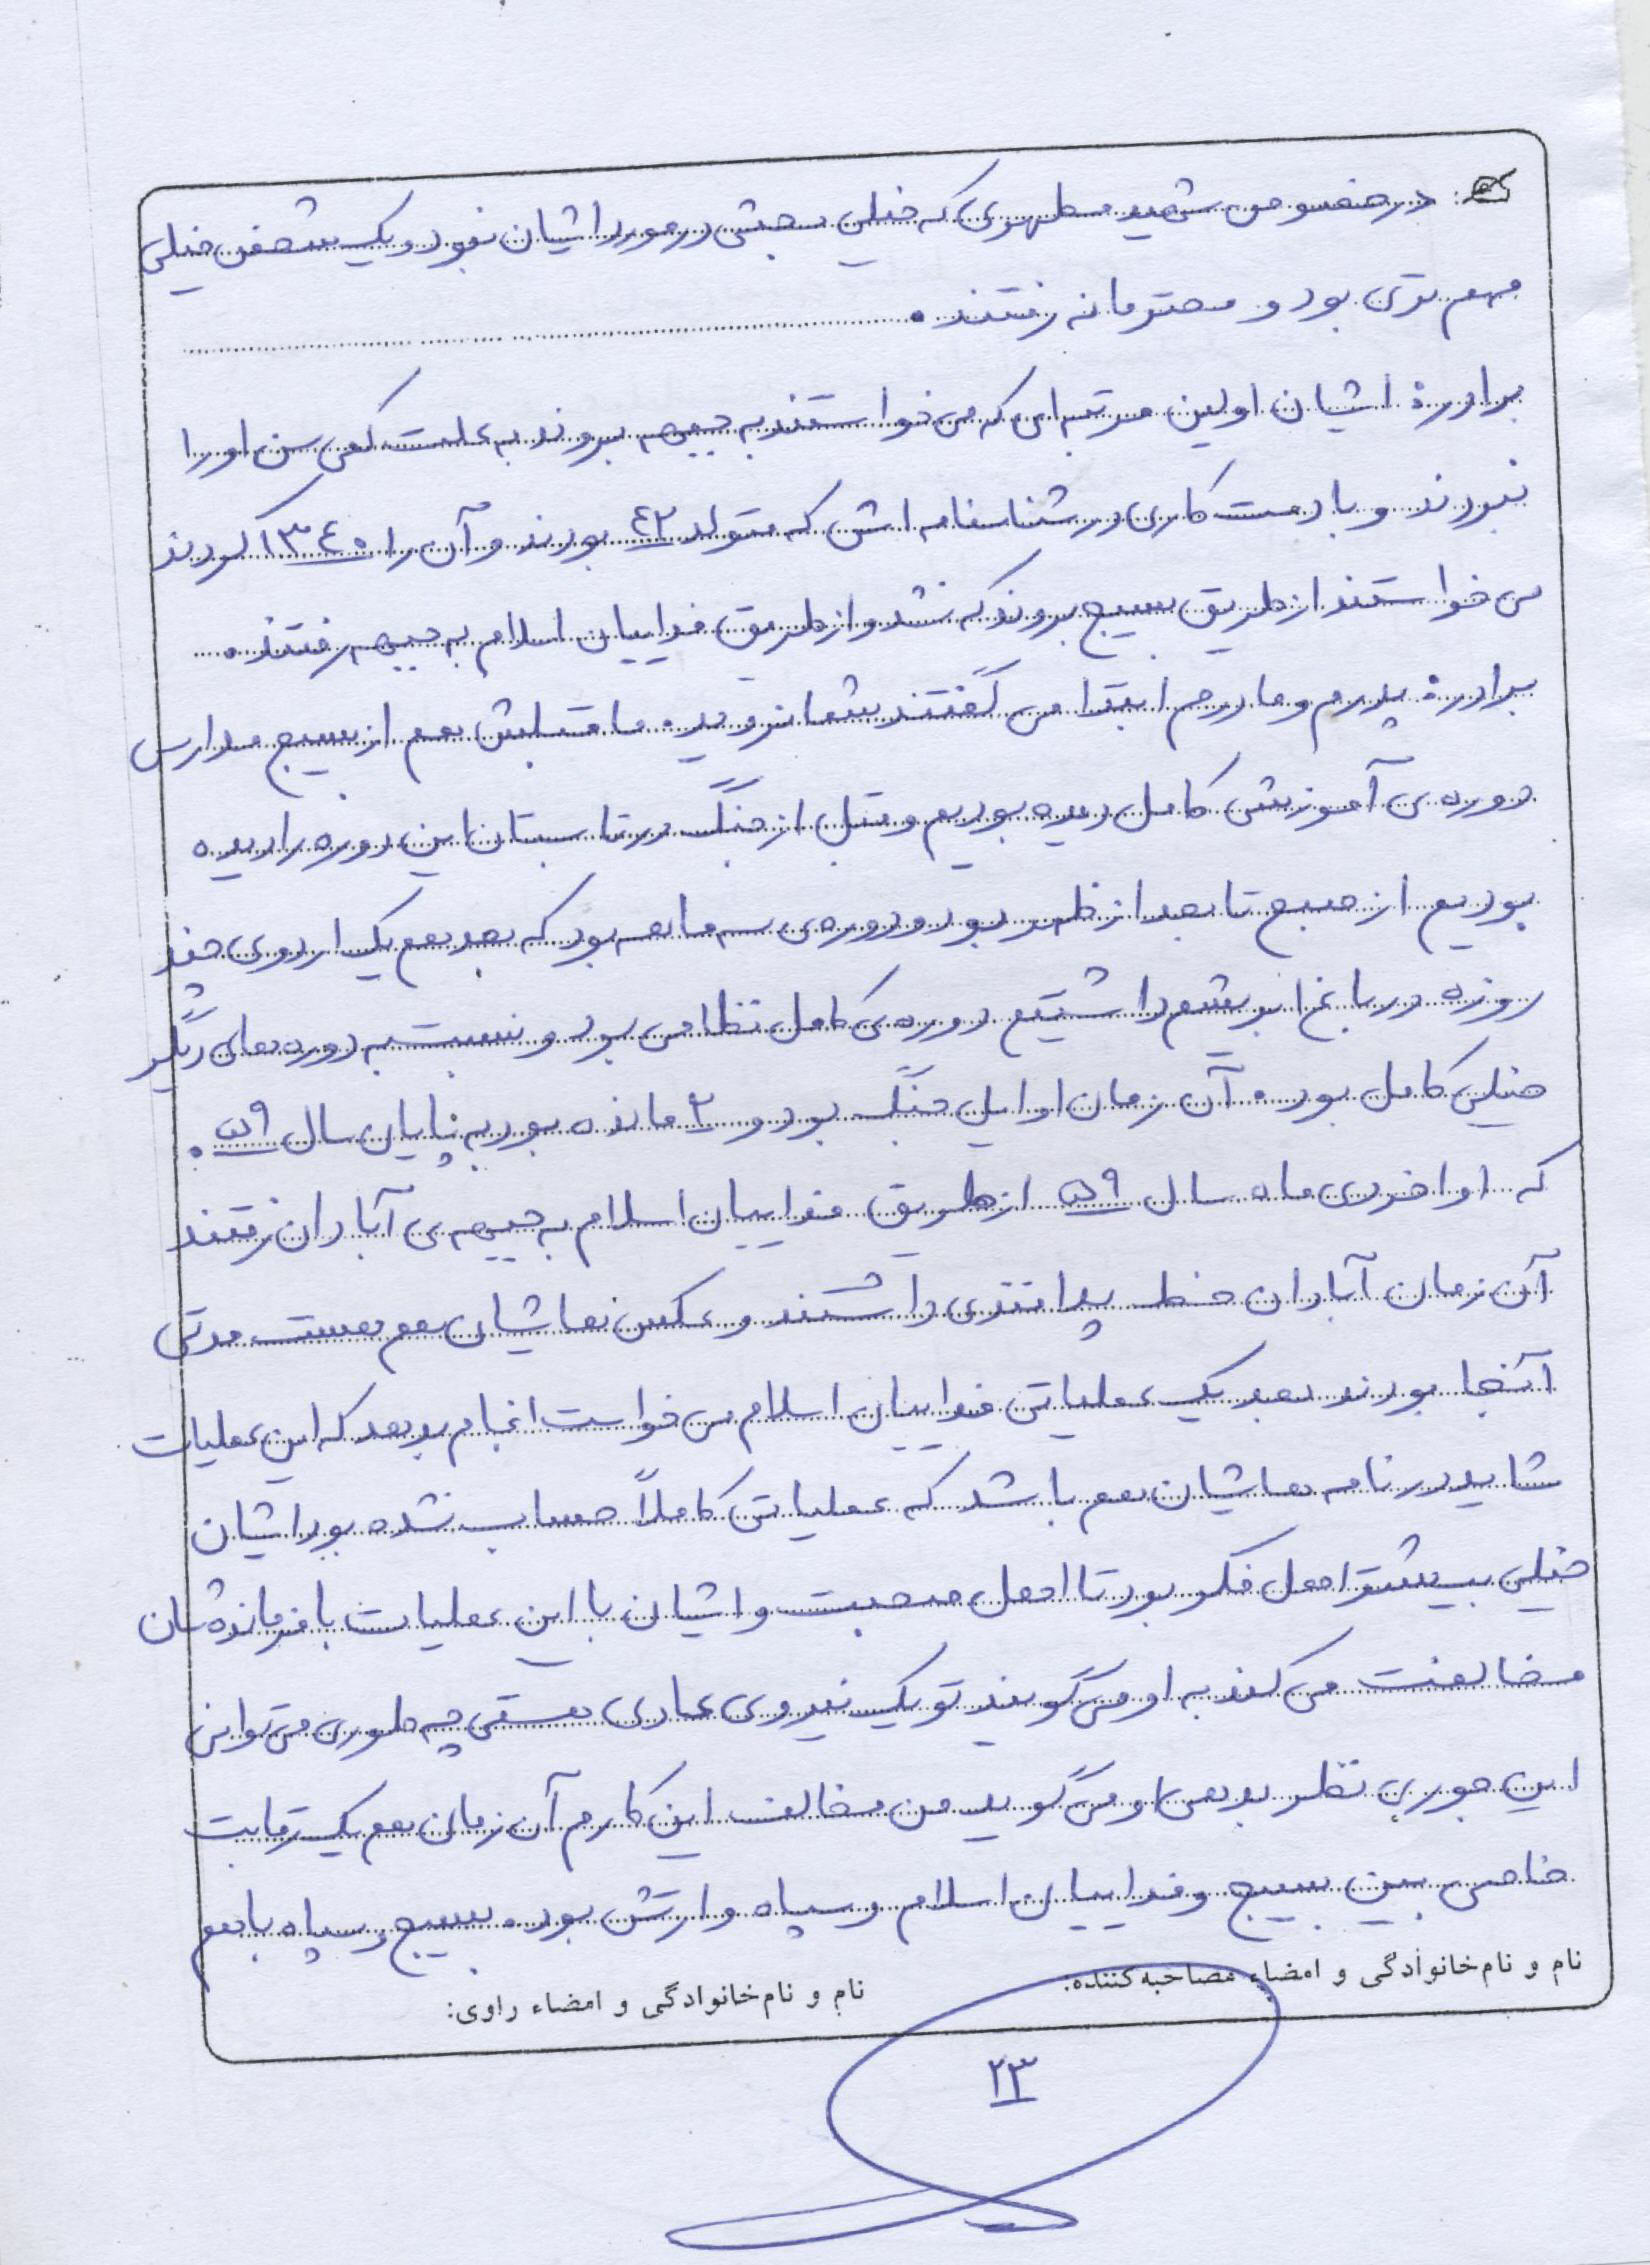 در خصوص شهید مطهری که خیلی بحثی در مورد ایشان نبود و یک شخص خیلی
مهم تری بود و محترمانه رفتند.
برادر: ایشان اولین مرتبه ای که می خواستند به جبهه بروند به علت کمی سن او را
نبردند و با دست کاری در شناسنامه اش که متولد ٤٢ بودند و آن را ١٣٤٠ کردند
می خواستند از طریق بسیج بروند که نشد و از طریق فداییان اسلام به جبهه رفتند.
برادر: پدرم و مادرم ابتدا می گفتند شما نروید. ما قبلش هم از بسیج مدارس
دوره ی آموزشی کامل دیده بودیم و قبل از جنگ در تابستان این دوره را دیده
بودیم از صبح تا بعد از ظهر بود و دوره ی سه ماهه بود که بعد هم یک اردوی چند
روزه در باغ ابریشم داشتیم دوره ی کامل نظامی بود و نسبت به دوره های دیگر
خیلی کامل بود. آن زمان اوایل جنگ بود و ٢ مانده بود به پایان سال ٥٩.
که اواخر دی ماه سال ٥٩ از طریق فداییان اسلام به جبهه ی آبادان رفتند
آن زمان آبادان خط پدافندی داشتند و عکس هاشیان هم هست مدتی
آنجا بودند بعد یک عملیاتی فداییان اسلام می خواست انجام بدهد که این عملیات
شاید در نامه هاشیان هم باشد که عملیاتی کاملاً حساب نشده بود ایشان
خیلی بیشتر اهل فکر بود تا اهل صحبت و ایشان با این عملیات با فرمانده شان
مخالفت می کند به او می گویند تو یک نیروی عادی هستی چه طوری می توانی
این جوری نظر بدهی او می گوید من مخالف این کارم آن زمان هم یک رقابت
خاصی بین بسیج و فداییان اسلام و سپاه و ارتش بود. بسیج و سپاه با هم
نام و نام خانوادگی و امضاء مصاحبه کننده: نام و نام خانوادگی و امضاء راوی:
٢٣